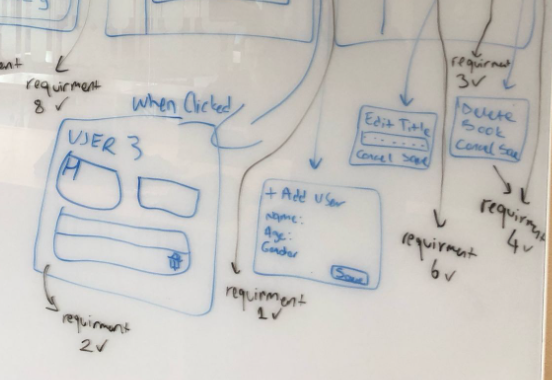 requirment
8 ✓
When Clicked
USER 3
requirment
2 ✓
requirment
1 ✓
+ Add User
name:
Age:
Gender
Save
Edit Title
Cancel Save
requirment
6 ✓
requirment
3 ✓
Delete
Book
Cancel Save
requirment
4 ✓